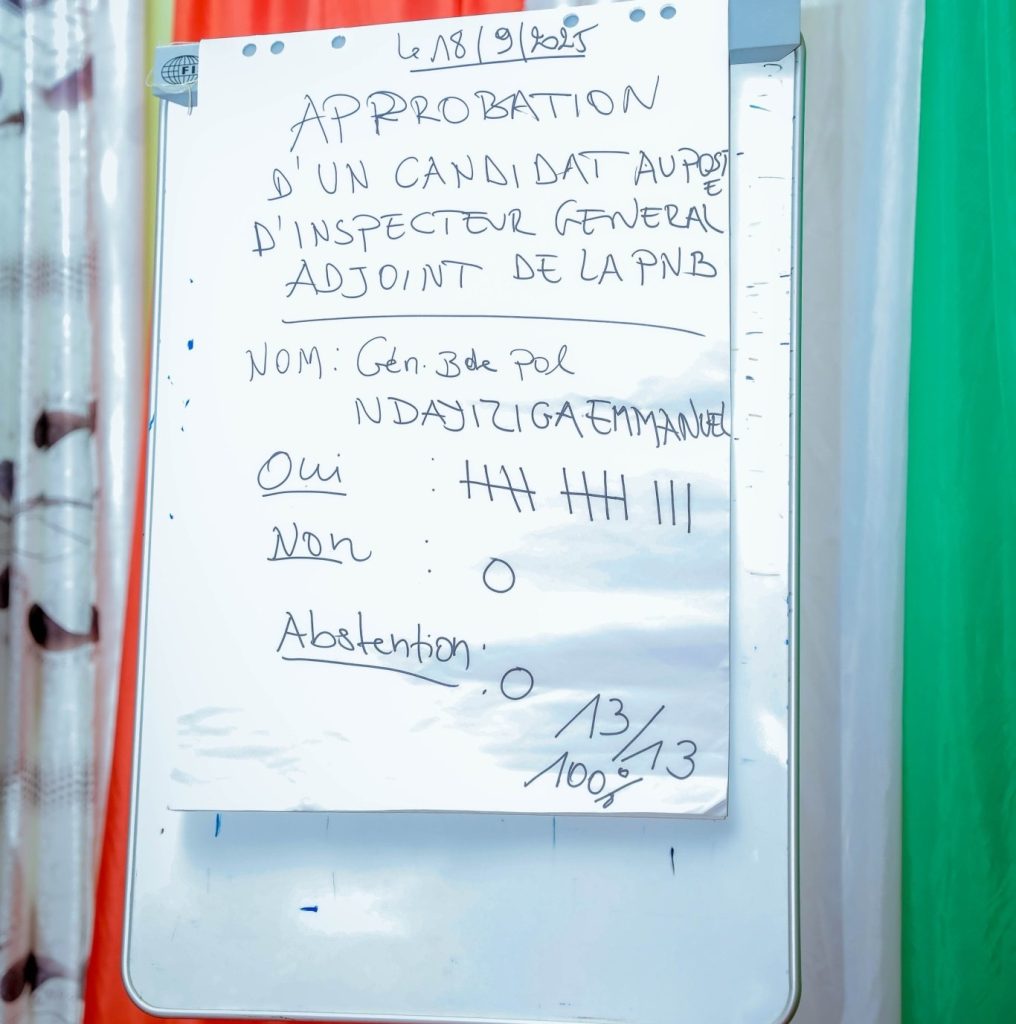 Le 18/9/2025
APPROBATION
D'UN CANDIDAT AU POSTE
D'INSPECTEUR GENERAL
ADJOINT DE LA PNB
NOM: Gén. Bde Pol
NDAYIZIGA EMMANUEL
Oui : |||| |||| |||
Non : 0
Abstention : 0
13/13
100%
FI